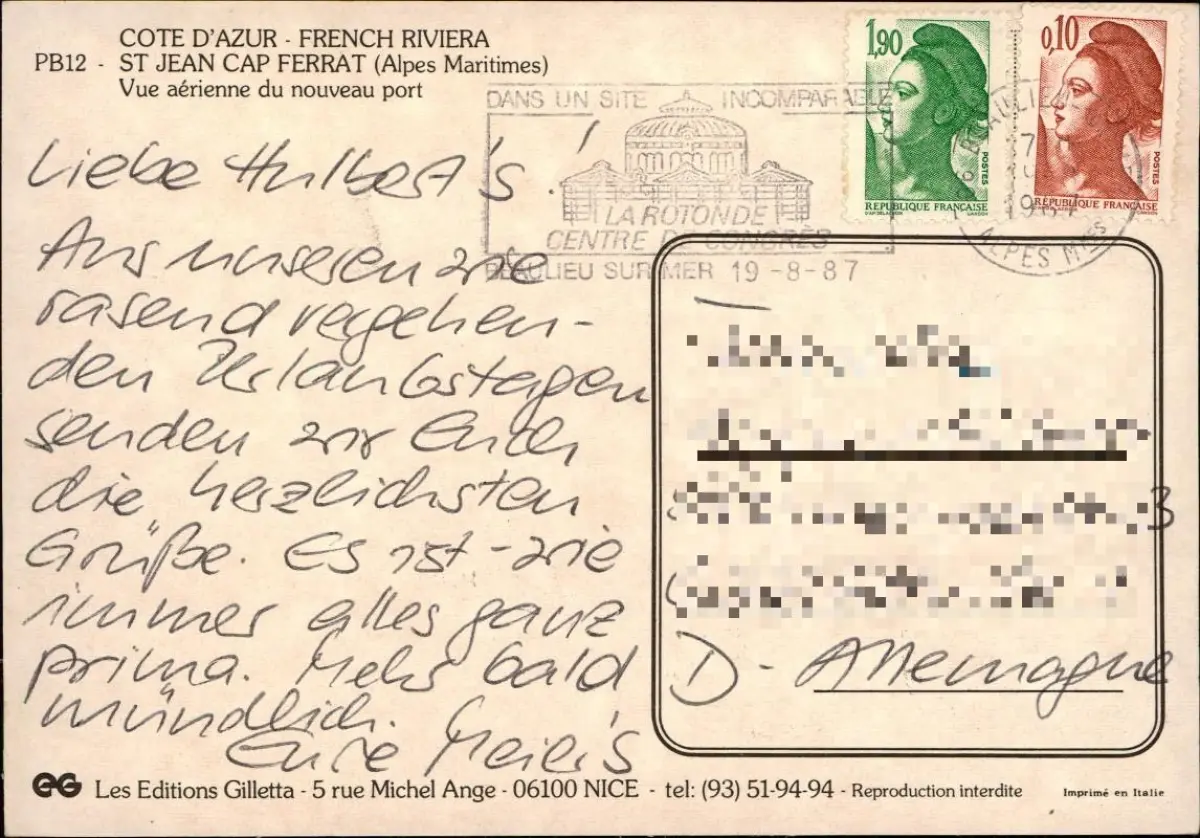 COTE D'AZUR - FRENCH RIVIERA
PB12 - ST JEAN CAP FERRAT (Alpes Maritimes)
Vue aérienne du nouveau port
1,90
POSTES
RÉPUBLIQUE FRANÇAISE
0,10
POSTES
RÉPUBLIQUE FRANÇAISE
DANS UN SITE INCOMPARABLE
LA ROTONDE
CENTRE DE CONGRÈS
BEAULIEU SUR MER 19-8-87
BEAULIEU
1987
ALPES Mmes
Liebe Hulbert's!
Aus unseren wie
rasend vergehen-
den Urlaubstagen
senden wir Euch
die herzlichsten
Grüße. Es ist - wie
immer alles ganz
prima. Mehr bald
mündlich.
Eure Meier's
3
D - Allemagne
EG Les Editions Gilletta - 5 rue Michel Ange - 06100 NICE - tel: (93) 51-94-94 - Reproduction interdite
Imprimé en Italie